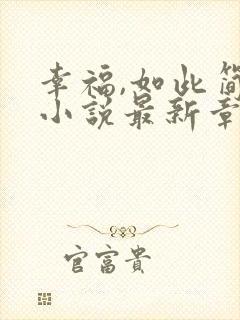 幸福,如此简
小说最新章
官富贵